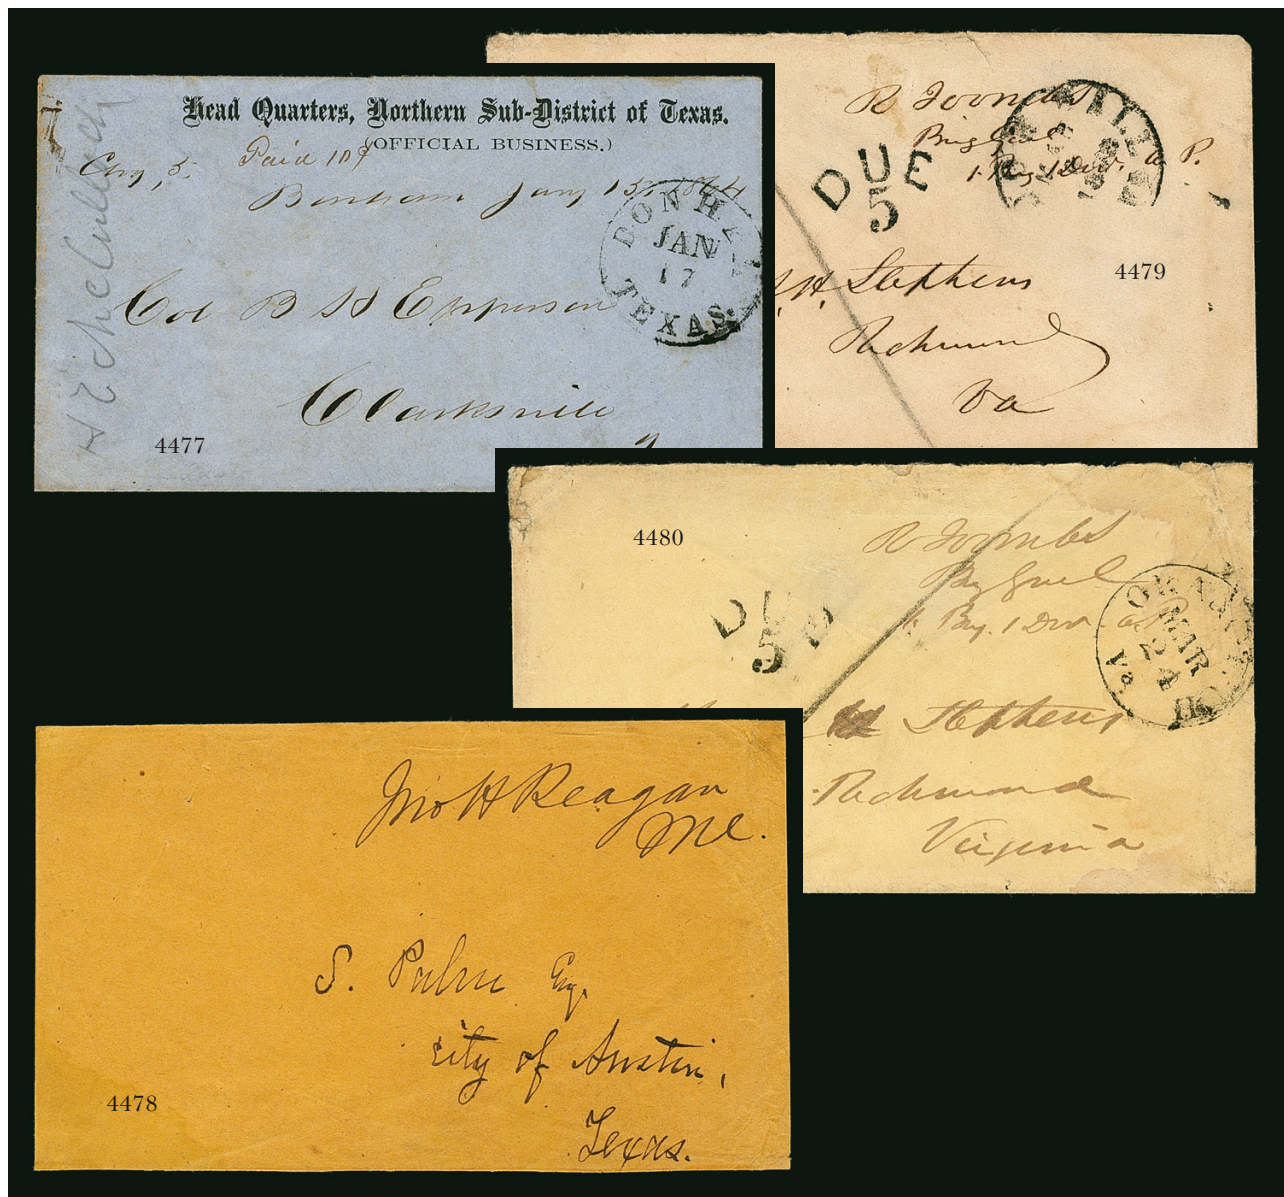 Head Quarters, Northern Sub-District of Texas.
(OFFICIAL BUSINESS.)
Chg, 5. Paid 10¢
Bonham Jany 15, 1864
BONHAM
JAN
17
TEXAS.
Col B H Epperson
Clarksville
4477
R Toombs
Brig Genl
1. Brig. 1 Div. A. P.
DUE
5
H. Stephens
Richmond
Va
4479
4480
R Toombs
Brig Genl
1. Brig. 1 Div. A P
DUE
5
MAR
24
Va
Stephens
Richmond
Virginia
Jno H Reagan
S. Palm Esq.
City of Austin,
Texas.
4478